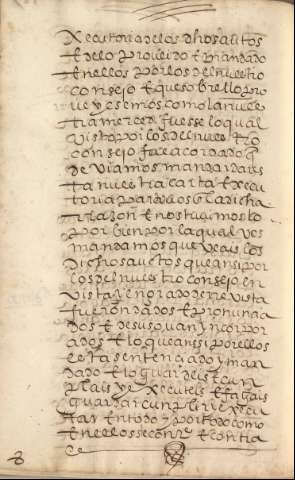 Xecutoria de los dhos autos
E de lo proveido E mandado
En ellos por los del nuestro
consejo E que sobrello pro
veyesemos como la nues
tra merced fuesse lo qual
visto por los del nuestro
consejo fue acordado q
deviamos mandar dar es
ta nuestra carta Execu
toria para bos En la dicha
rrazon E nos tuvimoslo
por bien por la qual vos
mandamos que veais los
dichos autos que ansi por
los del nuestro consejo en
vista y en grado de rrevista
fueron dados E pronuncia
dos E de suso van yncorpor
ados E lo que ansi por ellos
esta sentenciado y man
dado E lo guardeis E cun
plais y Executeis E fagais
guardar cunplir y Execu
tar En todo y por todo como
En ellos se contiene E contra